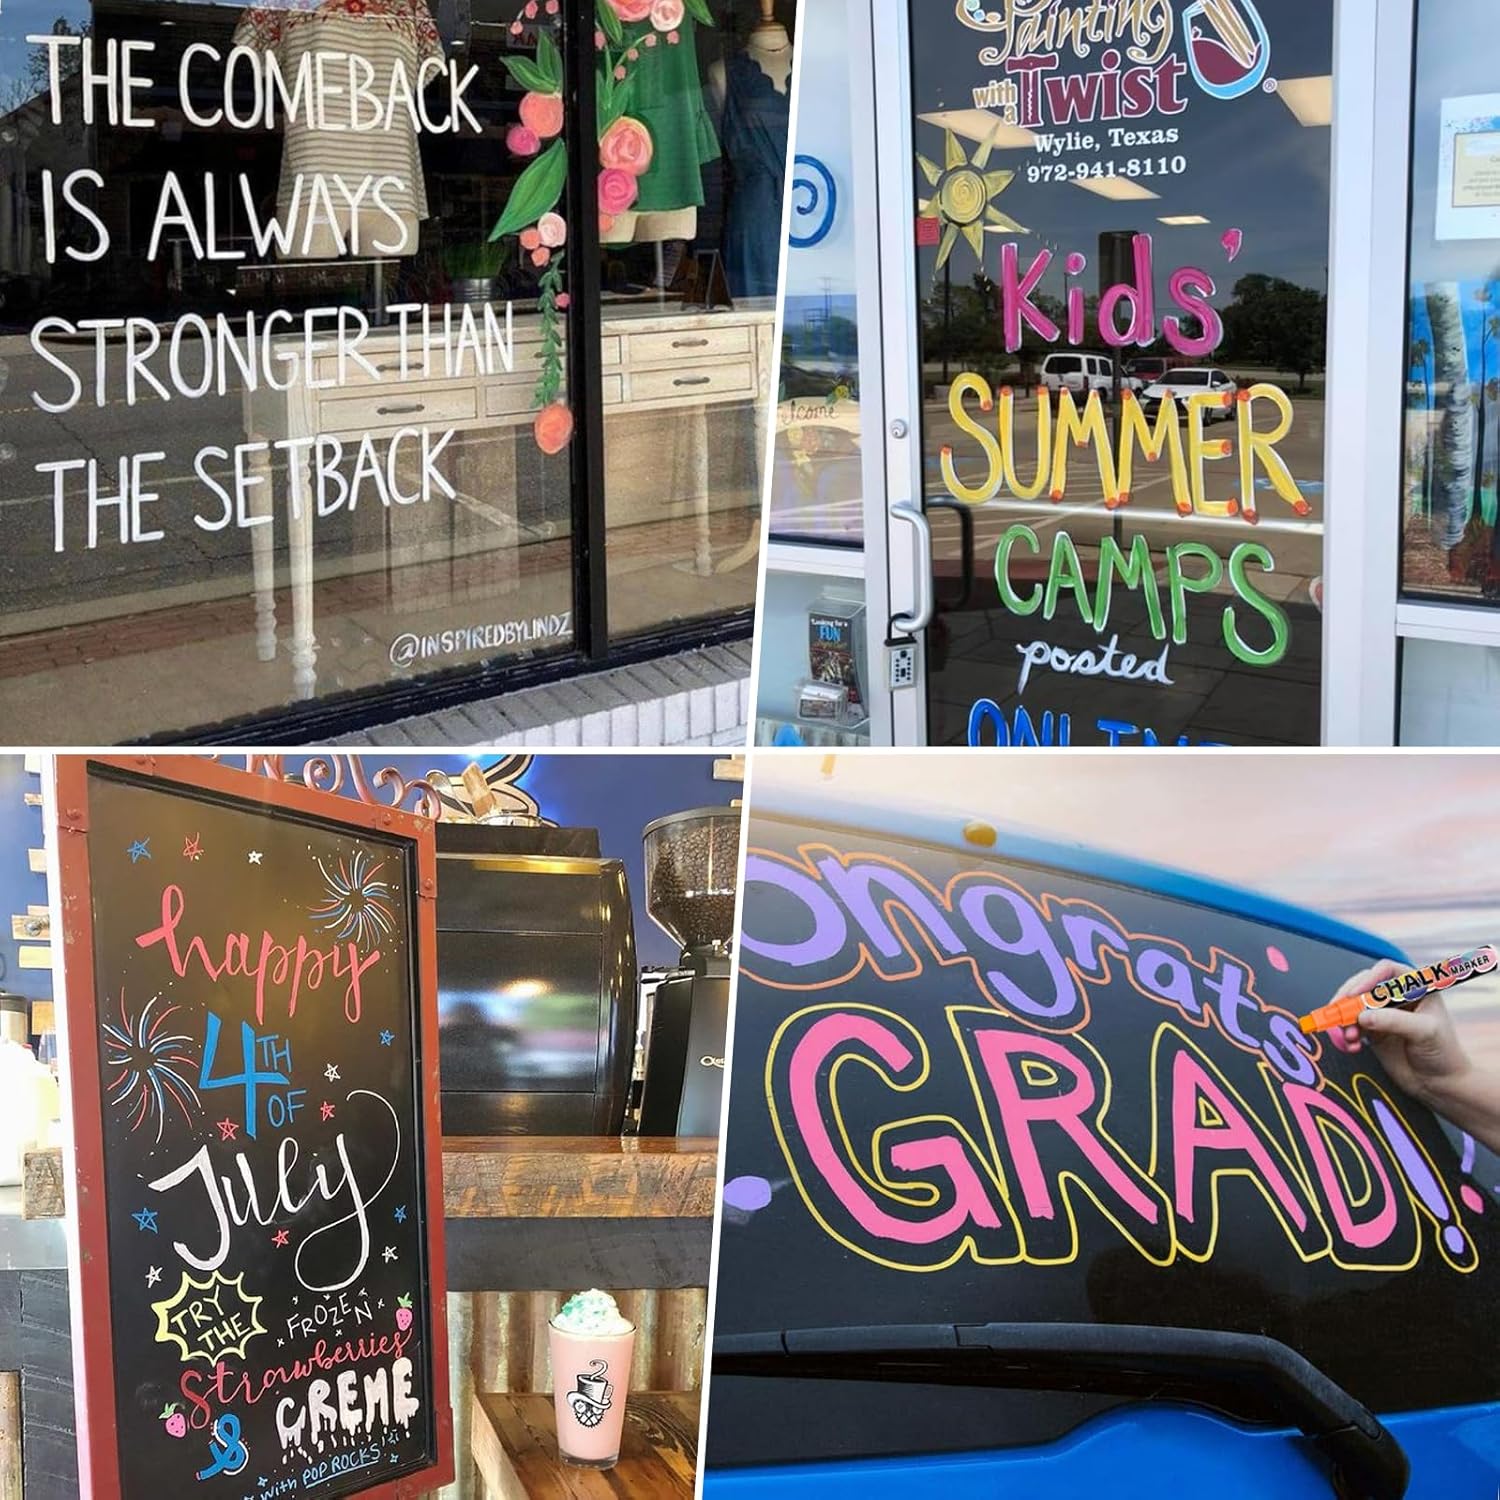 THE COMEBACK
IS ALWAYS
STRONGER THAN
THE SETBACK
@INSPIREDBYLINDZ
Painting
with a Twist
Wylie, Texas
972-941-8110
Kids'
SUMMER
CAMPS
posted
ONLINE
Looking for a
FUN
happy
4TH
OF
July
TRY
THE
FROZEN
Strawberries
&
CREME
with POP ROCKS
ongrats
GRAD!
CHALK MARKER